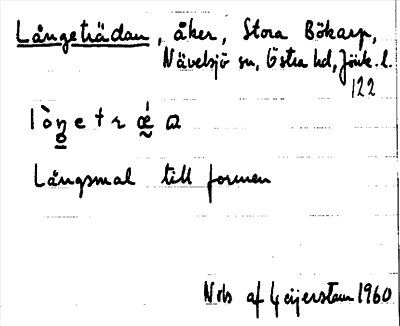 Långeträdan, åker, Stora Bökarp,
Nävelsjö sn, Östra hd, Jönk. l.
122
Långsmal till formen
Nils af Geijerstam 1960